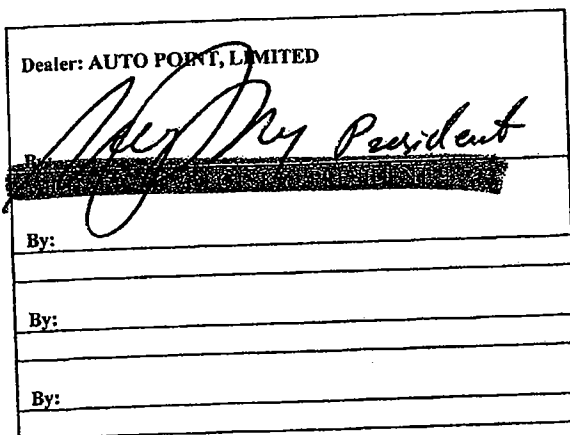 Dealer: AUTO POINT, LIMITED
By: President
By:
By:
By: